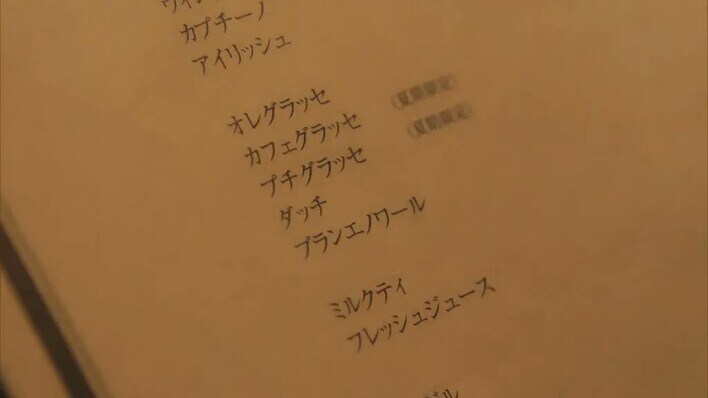 カプチーノ
アイリッシュ
オレグラッセ (夏期限定)
カフェグラッセ (夏期限定)
プチグラッセ
ダッチ
ブランエノワール
ミルクティ
フレッシュジュース